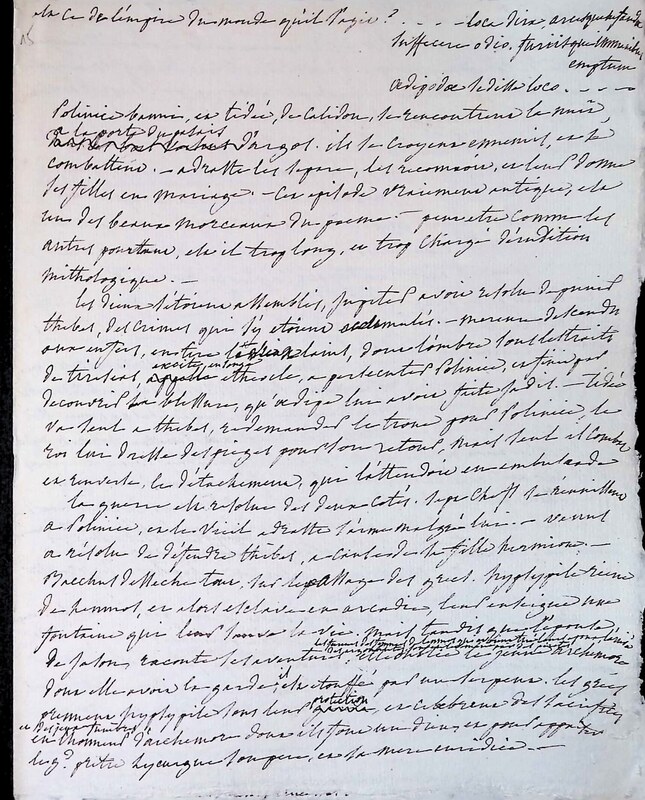 de l'empire du monde qu'il s'agit? . . . — loca dira arcesque
suffecere odio, furiisque immanibus
emptum
œdipodæ sedisse loco. . — —
Polinice banni, et tidée, de Calidon, se rencontrent la nuit,
a la porte du palais
d'argos. ils se croyent ennemis, et se
combattent. — adraste les separe, les reconnoit, et leur donne
ses filles en mariage. — Cet episode vraiment antique, est
un des beaux morceaux du poeme. — peut etre comme les
autres pourtant, est il trop long, et trop chargé d'érudition
mithologique. —
les dieux s'étoient assemblés, jupiter avoit resolu de punir
thebes, des crimes qui s'y etoient accumulés. — mercure descendu
aux enfers, en tire laius, dont l'ombre sous les traits
excite en songe
de tiresias, etheocle, a persecuter Polinice, et finit par
decouvrir la blessure, qu'œdipe lui avoit faite jadis. — tidée
va seul a thebes, redemander le trone pour Polinice, le
roi lui dresse des pieges pour son retour, mais seul il combat
et renverse, le détachement, qui l'attendoit en embuscade
la guerre est resolue des deux cotés. sept chefs se réunissent
a Polinice, et le vieil adraste s'arme malgré lui. — venus
a résolu de defendre thebes, a cause de sa fille hermione. —
Bacchus desseche tout, sur le passage des grecs. hypsypile reine
de lemnos, et alors esclave en arcadie, leur enseigne une
fontaine qui leur sauve la vie, mais tandis que
de jason, raconte ses aventures, elle oublie le jeune archemore
dont elle avoit la garde, il est etouffé par un serpent. les grecs
protection
prennent hypsypile sous leur et celebrent des sacrifices
et des jeux funebres
en l'honneur d'archemore dont ils font un dieu, et pour
le g.d pretre lycurgue son pere, et sa mere euridice. —